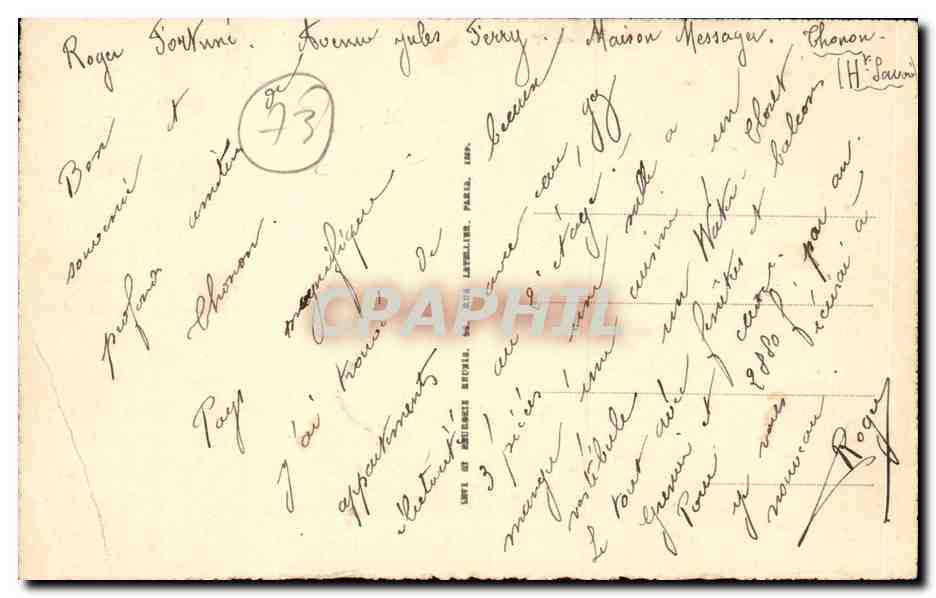 Roger Fortuné. Avenue Jules Ferry. Maison Messager. Thonon-
(Hte Savoie)
73
Bon et
souvenir de
profond amitié
Thonon.
Pays magnifique
J'ai trouvé de beaux
appartements
électricité avec eau, gaz
au 2e étage.
3 pièces, une salle a
manger, une cuisine un
vestibule un Water-Closet
Le tout avec fenêtres et balcons
Grenier et cave.
Pour 2880 f. par an.
je vous écrirai à
nouveau
Roger
LEVY ET NEURDEIN REUNIS, RUE LETELLIER, PARIS, IMP.
CPAPHIL